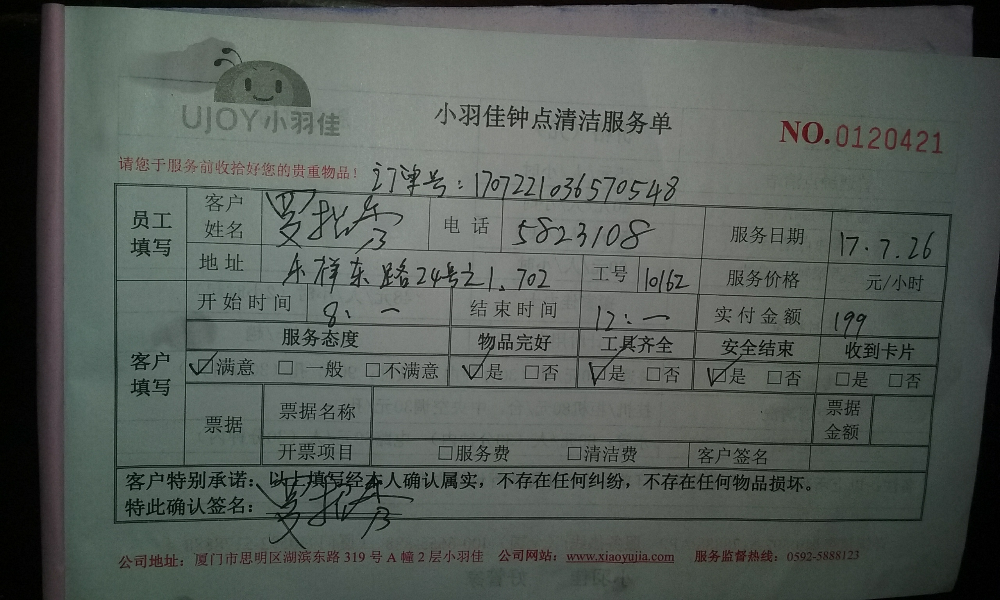 UJOY小羽佳
小羽佳钟点清洁服务单
NO.0120421
请您于服务前收拾好您的贵重物品！ 订单号：1707221036570548
员工填写 客户姓名 电话 5823108 服务日期 17.7.26
地址 乐祥东路24号之1.702 工号 10162 服务价格 元/小时
客户填写 开始时间 8：一 结束时间 12：一 实付金额 199
服务态度 物品完好 工具齐全 安全结束 收到卡片
☑满意 □一般 □不满意 ☑是 □否 ☑是 □否 ☑是 □否 □是 □否
票据 票据名称 票据金额
开票项目 □服务费 □清洁费 客户签名
客户特别承诺：以上填写经本人确认属实，不存在任何纠纷，不存在任何物品损坏。
特此确认签名：
公司地址：厦门市思明区湖滨东路319号A幢2层小羽佳 公司网站：www.xiaoyujia.com 服务监督热线：0592-5888123